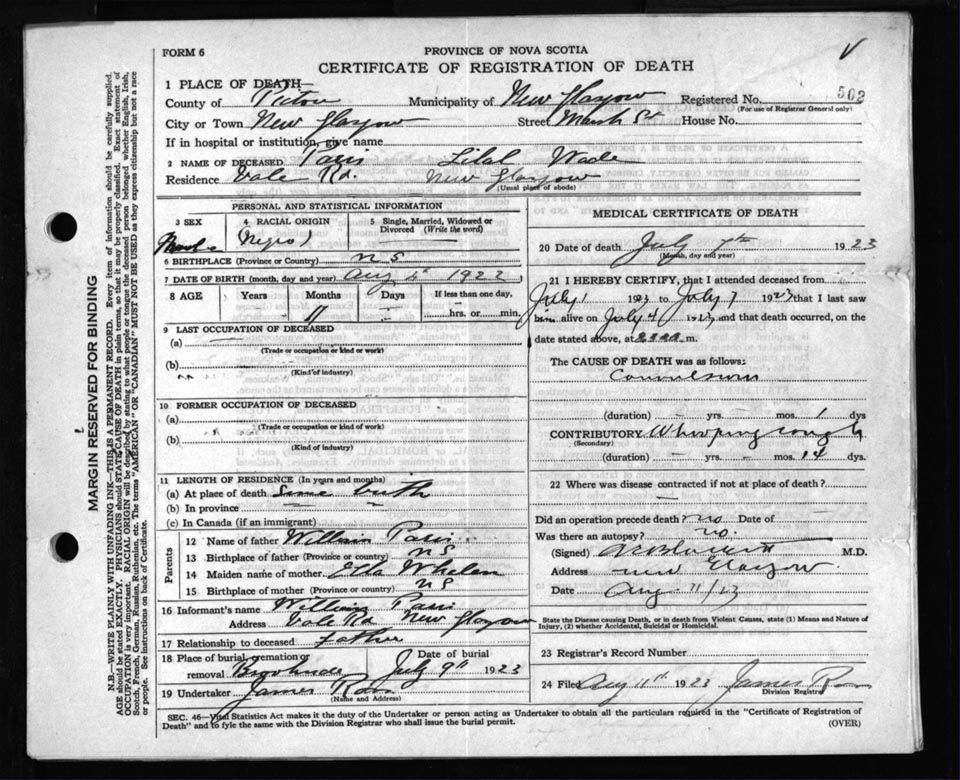 FORM 6
PROVINCE OF NOVA SCOTIA
CERTIFICATE OF REGISTRATION OF DEATH
1 PLACE OF DEATH—
County of Pictou Municipality of New Glasgow Registered No. 502
(For use of Registrar General only)
City or Town New Glasgow Street Marsh St House No.
If in hospital or institution, give name
2 NAME OF DECEASED Paris Lilal Wade
Residence Vale Rd. New Glasgow
(Usual place of abode)
PERSONAL AND STATISTICAL INFORMATION
3 SEX
4 RACIAL ORIGIN
5 Single, Married, Widowed or Divorced (Write the word)
(Negro)
6 BIRTHPLACE (Province or Country) N S
7 DATE OF BIRTH (month, day and year) Aug 1922
8 AGE Years Months Days If less than one day,
11 hrs. or min.
9 LAST OCCUPATION OF DECEASED
(a)
(Trade or occupation or kind or work)
(b)
(Kind of industry)
10 FORMER OCCUPATION OF DECEASED
(a)
(Trade or occupation or kind of work)
(b)
(Kind of industry)
11 LENGTH OF RESIDENCE (In years and months)
(a) At place of death Since birth
(b) In province
(c) In Canada (if an immigrant)
Parents
12 Name of father William Paris
13 Birthplace of father (Province or country) N S
14 Maiden name of mother Etta Whalen
15 Birthplace of mother (Province or country) N S
16 Informant's name William Paris
Address Vale Rd New Glasgow
17 Relationship to deceased Father
18 Place of burial, cremation or removal Date of burial July 9th 1923
19 Undertaker James Ross
(Name and Address)
MEDICAL CERTIFICATE OF DEATH
20 Date of death July 7th 1923
(Month, day and year)
21 I HEREBY CERTIFY, that I attended deceased from
July 1 1923 to July 7 1923 that I last saw
him alive on July 4 1923 and that death occurred, on the
date stated above, at m.
The CAUSE OF DEATH was as follows:
Convulsions
(duration) — yrs. — mos. 1 dys
CONTRIBUTORY Whooping cough
(Secondary)
(duration) — yrs. — mos. 14 dys.
22 Where was disease contracted if not at place of death?
Did an operation precede death? no Date of
Was there an autopsy? no.
(Signed) M.D.
Address New Glasgow.
Date Aug. 11/23
State the Disease causing Death, or in death from Violent Causes, state (1) Means and Nature of Injury, (2) whether Accidental, Suicidal or Homicidal.
23 Registrar's Record Number
24 Filed Aug 11th 1923 James Ross
Division Registrar
SEC. 46—Vital Statistics Act makes it the duty of the Undertaker or person acting as Undertaker to obtain all the particulars required in the "Certificate of Registration of
Death" and to fyle the same with the Division Registrar who shall issue the burial permit.
(OVER)
MARGIN RESERVED FOR BINDING
N.B.—WRITE PLAINLY WITH UNFADING INK—THIS IS A PERMANENT RECORD. Every item of information should be carefully supplied.
AGE should be stated EXACTLY. PHYSICIANS should STATE CAUSE OF DEATH in plain terms, so that it may be properly classified. Exact statement of
OCCUPATION is very important. RACIAL ORIGIN will be described by stating to what people or tongue the deceased person belonged whether English, Irish,
Scotch, French, German, Russian, Ruthenian, etc. The terms "AMERICAN" or "CANADIAN" MUST NOT BE USED as they express citizenship but not a race
or people. See instructions on back of Certificate.